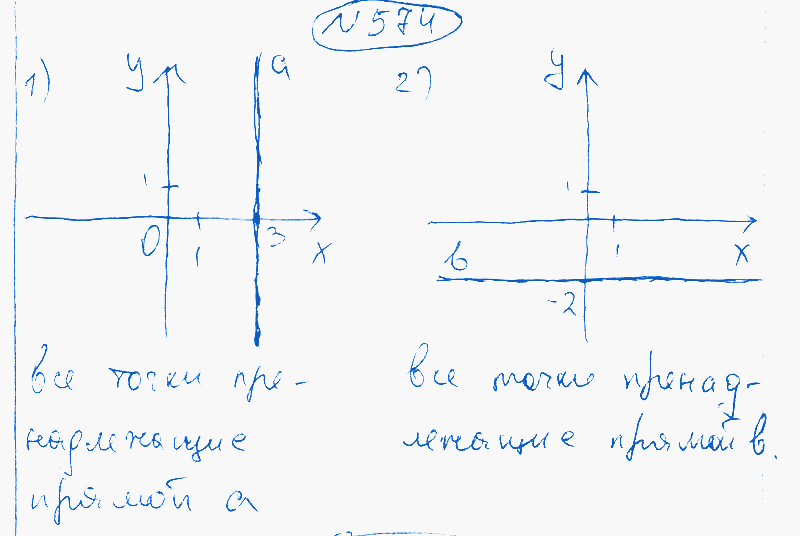 N574
1) y a 2) y
1 1
0 1 3 x 1 x
в
-2
все точки пре-
надлежащие
прямой а
все точки пренад-
лежащие прямой в.